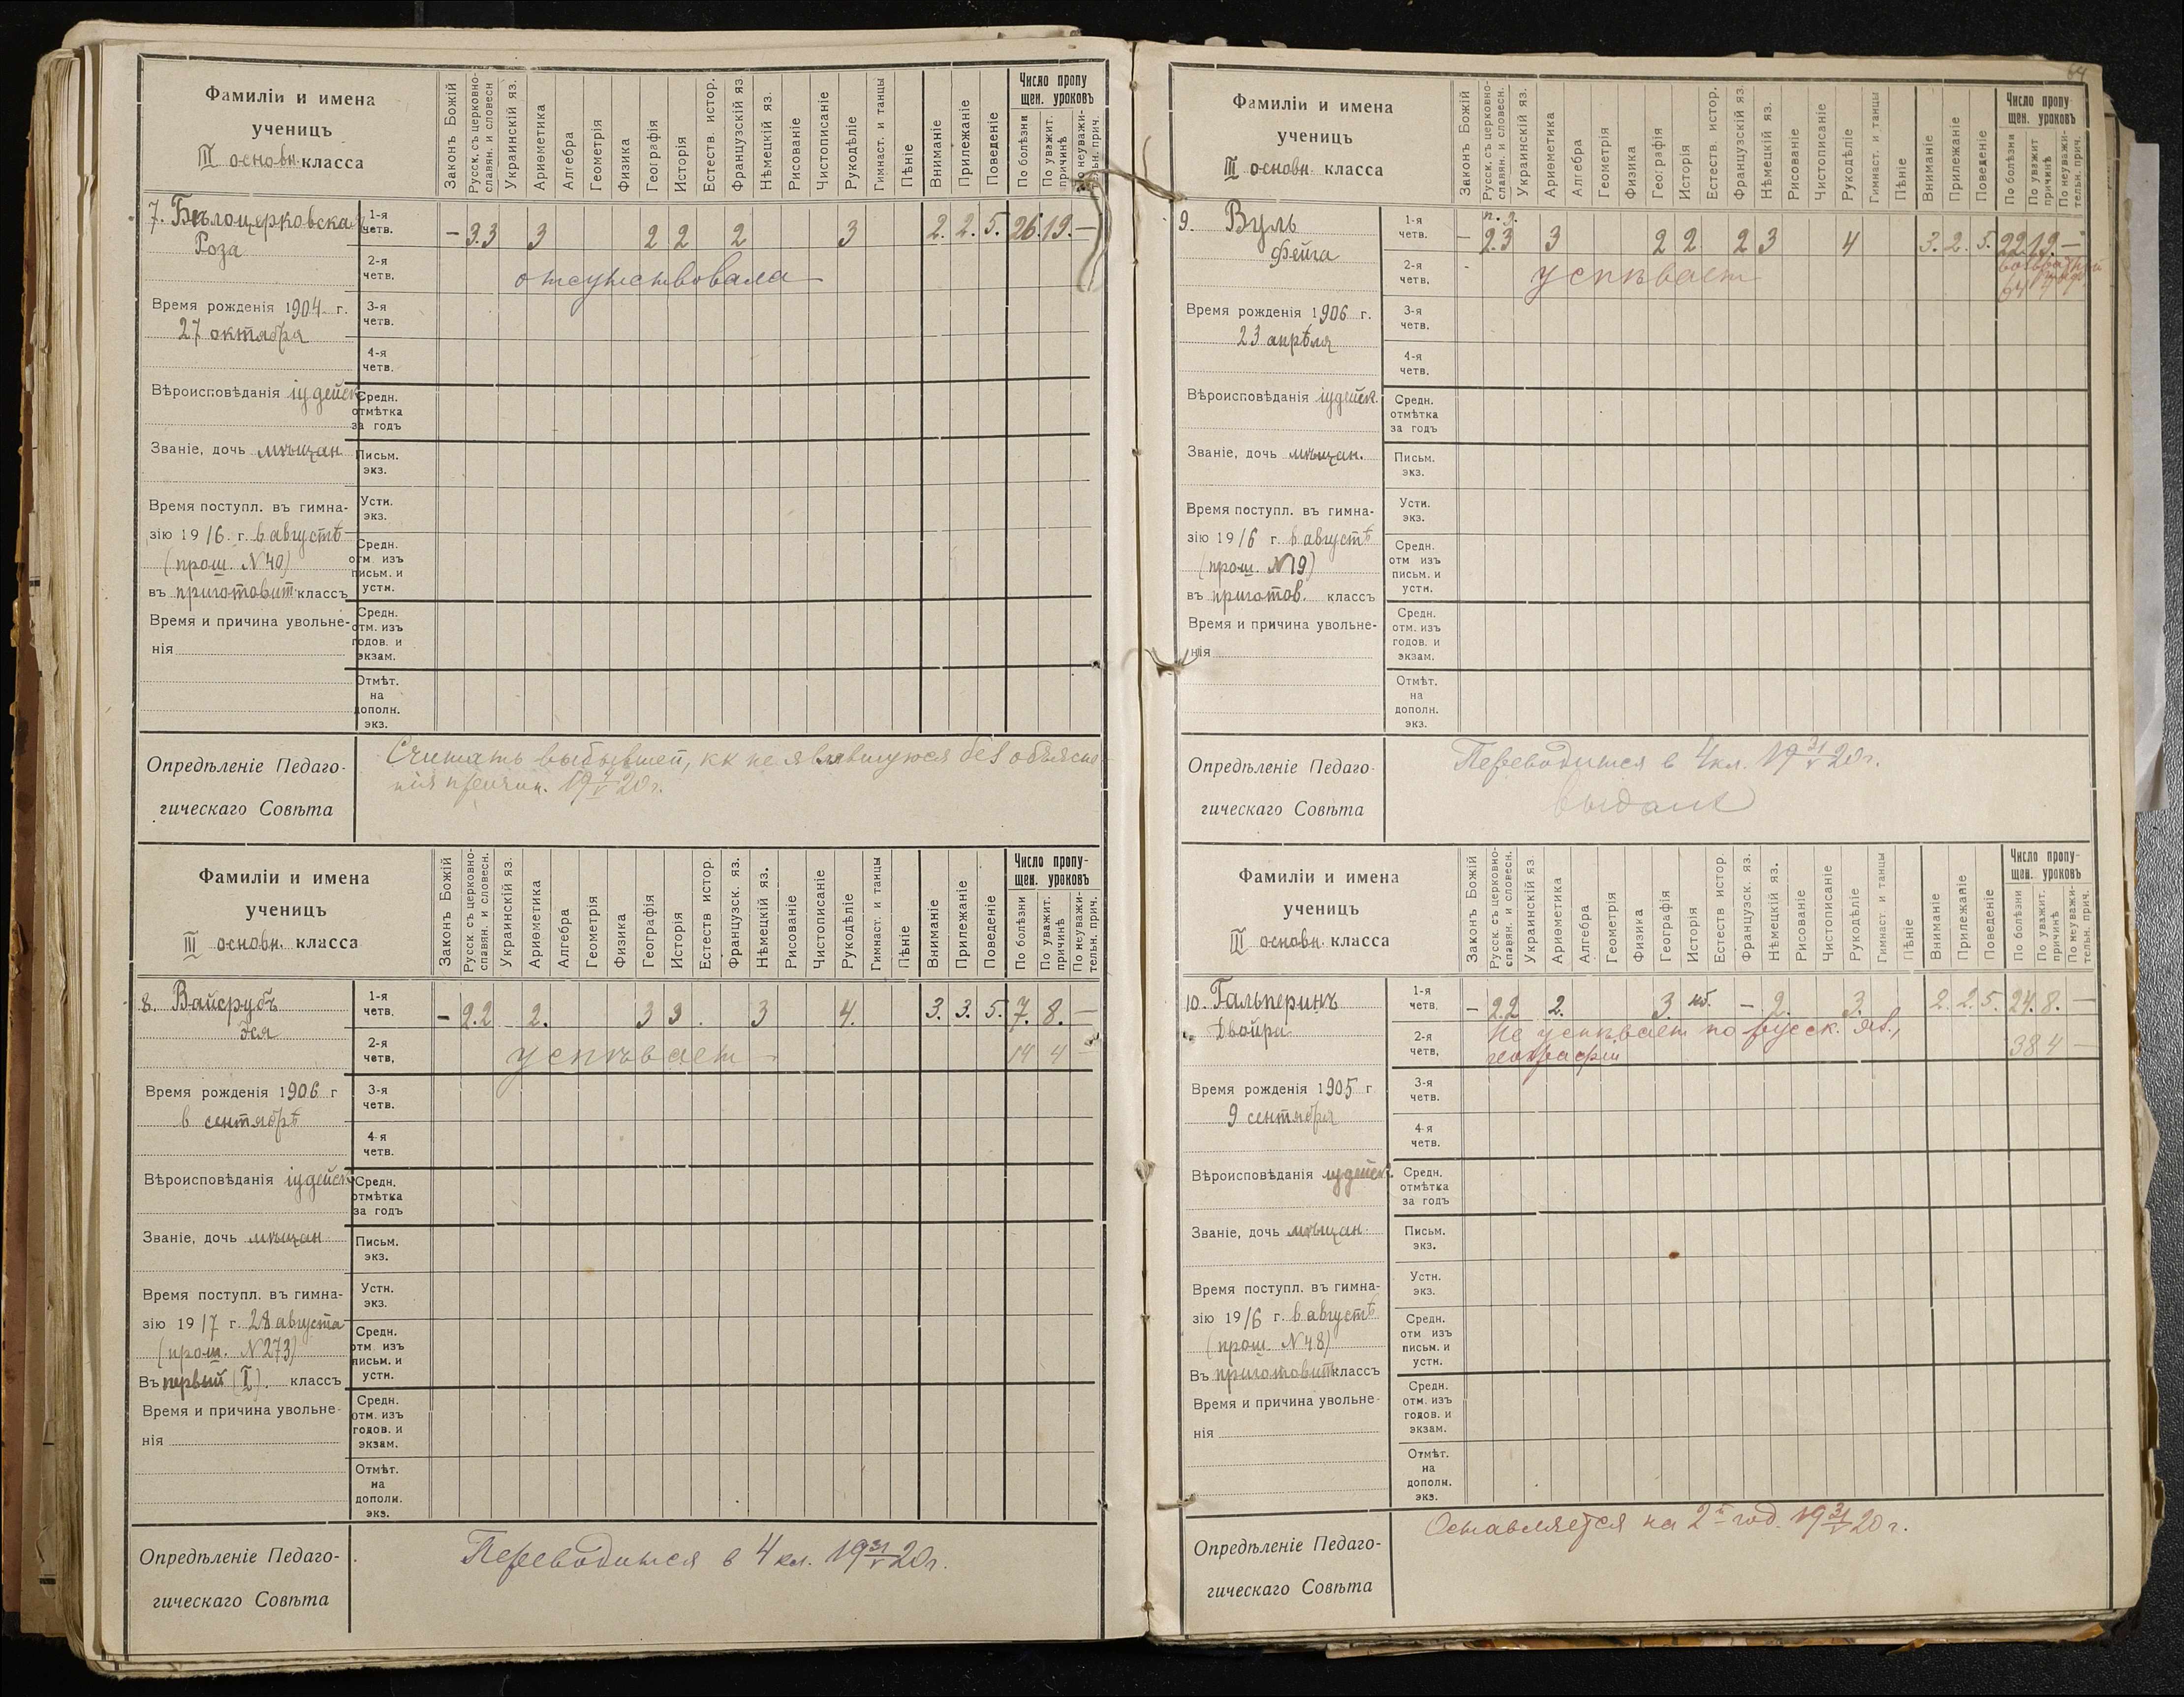 Фамиліи и имена
ученицъ
III основн. класса
Законъ Божій
Русск. съ церковно-
славян. и словесн
Украинскій яз.
Ариѳметика
Алгебра
Геометрія
Физика
Географія
Исторія
Естеств. истор.
Французскій яз
Нѣмецкій яз.
Рисованіе
Чистописаніе
Рукодѣліе
Гимнаст. и танцы
Пѣніе
Вниманіе
Прилежаніе
Поведеніе
Число пропу
щен. уроковъ
По болѣзни
По уважит.
причинѣ
По неуважи-
тельн. прич.
7. Бѣлоцерковская
Роза
1-я
четв.
– 3.3 3 2 2 2 3 2. 2. 5. 26. 19. –
2-я
четв.
отсутствовала
Время рожденія 1904 г.
27 октября
3-я
четв.
4-я
четв.
Вѣроисповѣданія іудейск
Средн.
отмѣтка
за годъ
Званіе, дочь мѣщан
Письм.
экз.
Время поступл. въ гимна-
зію 1916. г. в августѣ
(прош. N 40)
въ приготовит. классъ
Устн.
экз.
Средн.
отм. изъ
письм. и
устн.
Время и причина увольне-
нія
Средн.
отм. изъ
годов. и
экзам.
Отмѣт.
на
дополн.
экз.
Опредѣленіе Педаго-
гическаго Совѣта
Считать выбывшей, кк не являвшуюся без объясне-
нія причин. 19 V 20 г.
Фамиліи и имена
ученицъ
III основн. класса
Законъ Божій
Русск. съ церковно-
славян. и словесн.
Украинскій яз.
Ариѳметика
Алгебра
Геометрія
Физика
Географія
Исторія
Естеств. истор
Французск. яз.
Нѣмецкій яз.
Рисованіе
Чистописаніе
Рукодѣліе
Гимнаст. и танцы
Пѣніе
Вниманіе
Прилежаніе
Поведеніе
Число пропу-
щен. уроковъ
По болѣзни
По уважит.
причинѣ
По неуважи-
тельн. прич.
8. Вайсрубъ
Эся
1-я
четв.
– 2.2 2. 3 3. 3 4. 3. 3. 5. 7. 8. –
2-я
четв.
успѣвает – 14 4 –
Время рожденія 1906 г
в сентябрѣ
3-я
четв.
4-я
четв.
Вѣроисповѣданія іудейск
Средн.
отмѣтка
за годъ
Званіе, дочь мѣщан
Письм.
экз.
Время поступл. въ гимна-
зію 1917 г. 28 августа
(прош. N 273)
Въ первый (I). классъ
Устн.
экз.
Средн.
отм. изъ
письм. и
устн.
Время и причина увольне-
нія
Средн.
отм. изъ
годов. и
экзам.
Отмѣт.
на
дополн.
экз.
Опредѣленіе Педаго-
гическаго Совѣта
Переводится в 4 кл. 19 31/V 20 г.
64
Фамиліи и имена
ученицъ
III основн. класса
Законъ Божій
Русск. съ церковно-
славян. и словесн.
Украинскій яз.
Ариѳметика
Алгебра
Геометрія
Физика
Географія
Исторія
Естеств. истор.
Французскій яз.
Нѣмецкій яз.
Рисованіе
Чистописаніе
Рукодѣліе
Гимнаст. и танцы
Пѣніе
Вниманіе
Прилежаніе
Поведеніе
Число пропу
щен. уроковъ
По болѣзни
По уважит
причинѣ
По неуважи-
тельн. прич.
9. Вуль
Фейга
1-я
четв.
– 2.3 3 2 2 2 3 4 3. 2. 5. 22 19. –
2-я
четв.
успѣвает
Время рожденія 1906 г.
23 апрѣля
3-я
четв.
4-я
четв.
Вѣроисповѣданія іудейск.
Средн.
отмѣтка
за годъ
Званіе, дочь мѣщан.
Письм.
экз.
Время поступл. въ гимна-
зію 1916 г. в августѣ
(прош. N 19)
въ приготов. классъ
Устн.
экз.
Средн.
отм изъ
письм. и
устн.
Время и причина увольне-
нія
Средн.
отм. изъ
годов. и
экзам.
Отмѣт.
на
дополн.
экз.
Опредѣленіе Педаго-
гическаго Совѣта
Переводится в 4 кл. 19 31/V 20 г.
Фамиліи и имена
ученицъ
III основн. класса
Законъ Божій
Русск. съ церковно-
славян. и словесн.
Украинскій яз
Ариѳметика
Алгебра
Геометрія
Физика
Географія
Исторія
Естеств истор.
Французск. яз.
Нѣмецкій яз.
Рисованіе
Чистописаніе
Рукодѣліе
Гимнаст. и танцы
Пѣніе
Вниманіе
Прилежаніе
Поведеніе
Число пропу-
щен. уроковъ
По болѣзни
По уважит.
причинѣ
По неуважи-
тельн. прич.
10. Гальперинъ
Двойра
1-я
четв.
– 2.2 2. 3. нб. – 2. 3. 2. 2. 5. 24. 8. –
2-я
четв.
Не успѣвает по русск. яз.,
географіи
38 4 –
Время рожденія 1905 г
9 сентября
3-я
четв.
4-я
четв.
Вѣроисповѣданія іудейск.
Средн.
отмѣтка
за годъ
Званіе, дочь мѣщан.
Письм.
экз.
Время поступл. въ гимна-
зію 1916 г. в августѣ
(прош. N 48)
Въ приготовит классъ
Устн.
экз.
Средн.
отм изъ
письм. и
устн.
Время и причина увольне-
нія
Средн.
отм. изъ
годов. и
экзам.
Отмѣт.
на
дополн.
экз.
Опредѣленіе Педаго-
гическаго Совѣта
Оставляется на 2й год. 19 31/V 20 г.